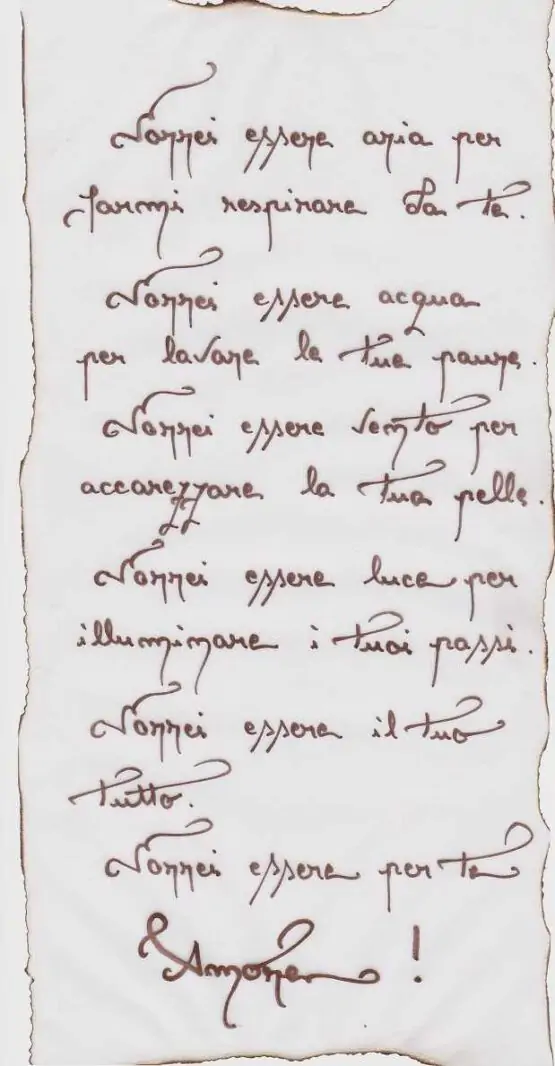 Vorrei essere aria per
farmi respirare da te.
Vorrei essere acqua
per lavare le tue paure.
Vorrei essere vento per
accarezzare la tua pelle.
Vorrei essere luce per
illuminare i tuoi passi.
Vorrei essere il tuo
tutto.
Vorrei essere per te
Amore!